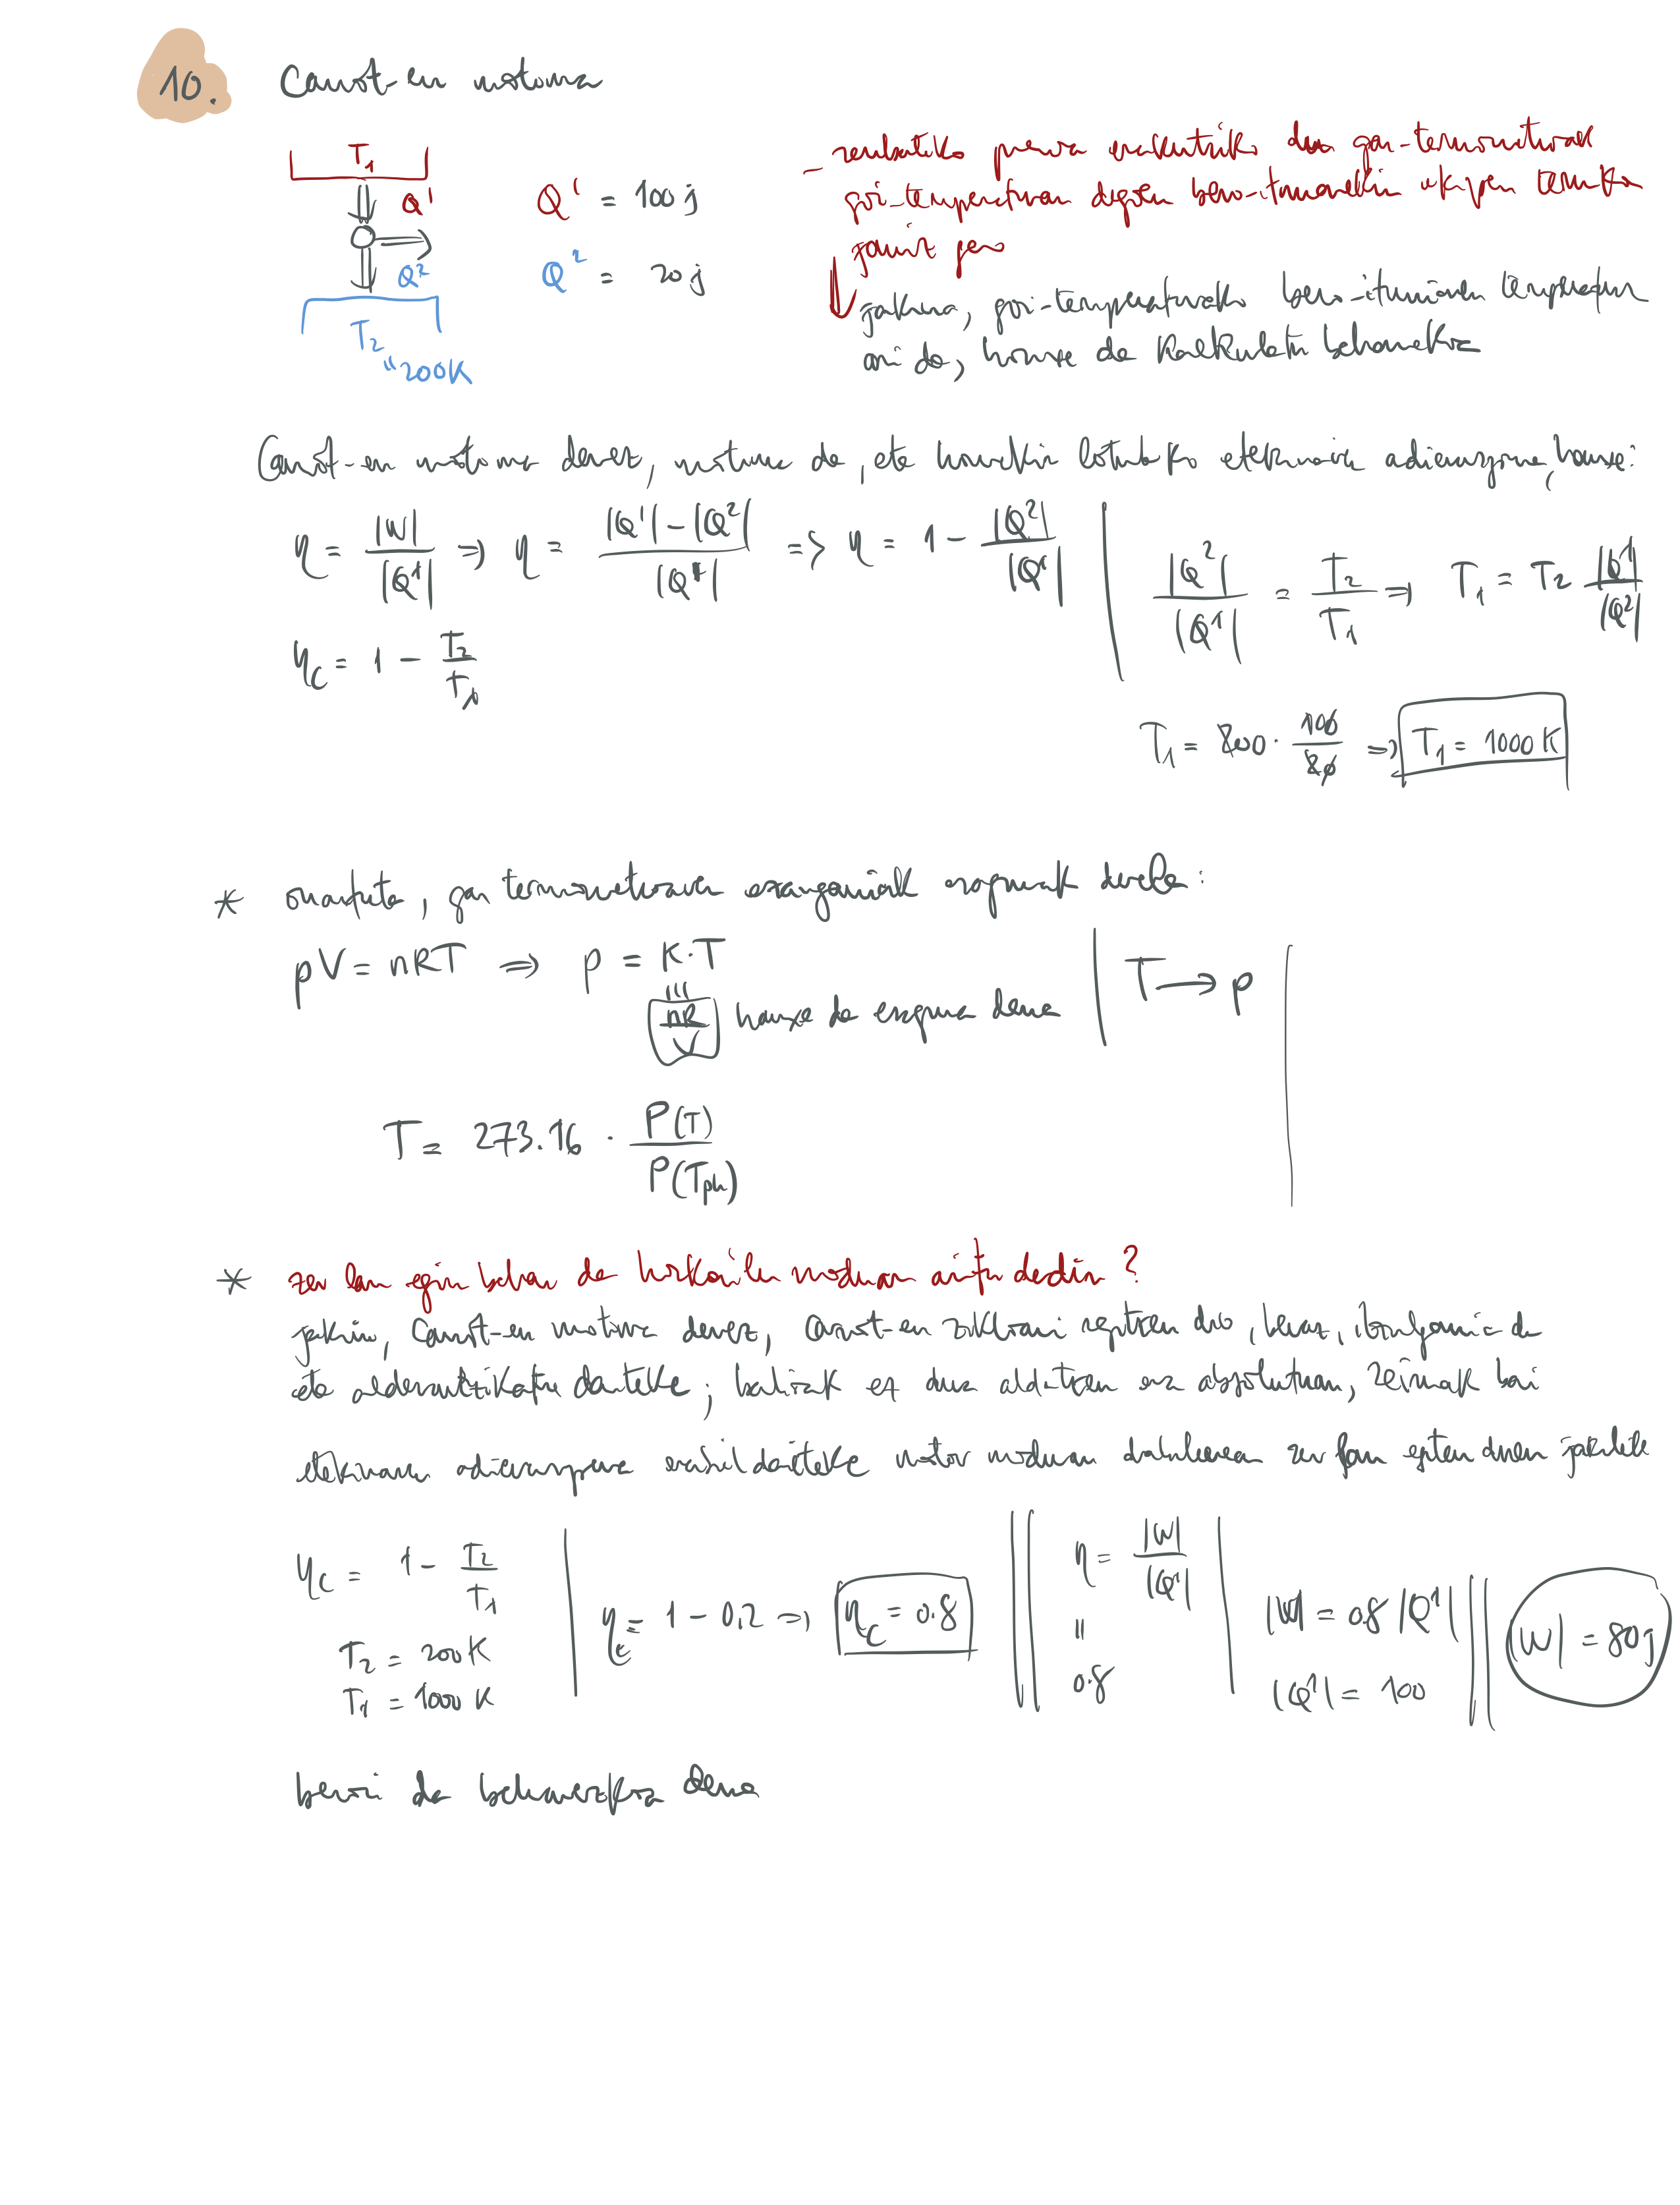 10. Carnot-en motorra
T₁
Q¹
Q¹ = 100 j
Q²
Q² = 20 j
T₂
" 200K
- zenbateko presioa erakutsiko du gas-termometroak
goi-temperaturan dagoen bero-iturriarekin ukipen termikoa
jarriz gero
jakina, goi-temperaturako bero-iturriaren temperatura
ari da, hauxe da kalkulatu beharrekoa
Carnot-en motorra denez, motorra da, eta horrekin loturako etekinaren adierazpena, hauxe:
η = |W| / |Q¹| ⇒ η = (|Q¹| - |Q²|) / |Q¹| => η = 1 - |Q²| / |Q¹|
|Q²| / |Q¹| = T₂ / T₁ ⇒ T₁ = T₂ |Q¹| / |Q²|
ηc = 1 - T₂ / T₁
T₁ = 200 · 100 / 20 ⇒ T₁ = 1000 K
* gas termometroaren ezaugarriak ezagunak direla:
pV = nRT ⇒ p = K·T
nR / V hauxe da ezaguna dena
T → p
T = 273.16 · P(T) / P(Tph)
* zer lan egin behar da hozkailu moduan aritu dadin?
jakina, Carnot-en motorra denez, Carnot-en zikloari segitzen dio, beraz, itzulgarria da
eta alderantzikatu daiteke; balioak ez dira aldatzen era absolutuan, zeinuak bai
etekinaren adierazpena erabil daiteke motor moduan dabilenean zer lan egiten duen jakiteko
ηc = 1 - T₂ / T₁
T₂ = 200K
T₁ = 1000 K
ηc = 1 - 0,2 ⇒ ηc = 0.8
η = |W| / |Q¹|
"
0.8
|W| = 0.8 |Q¹|
|Q¹| = 100
|W| = 80 j
berori da beharrezkoa dena